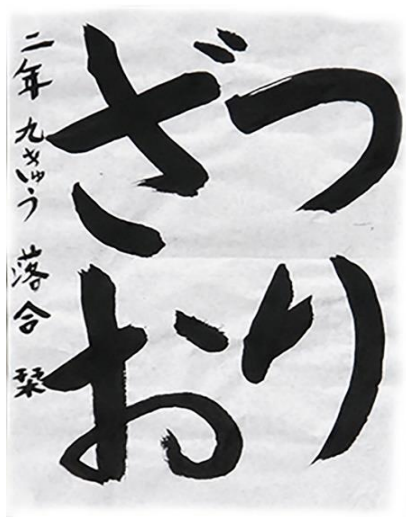 つり
ざお
二年 九きゅう 落合 栞